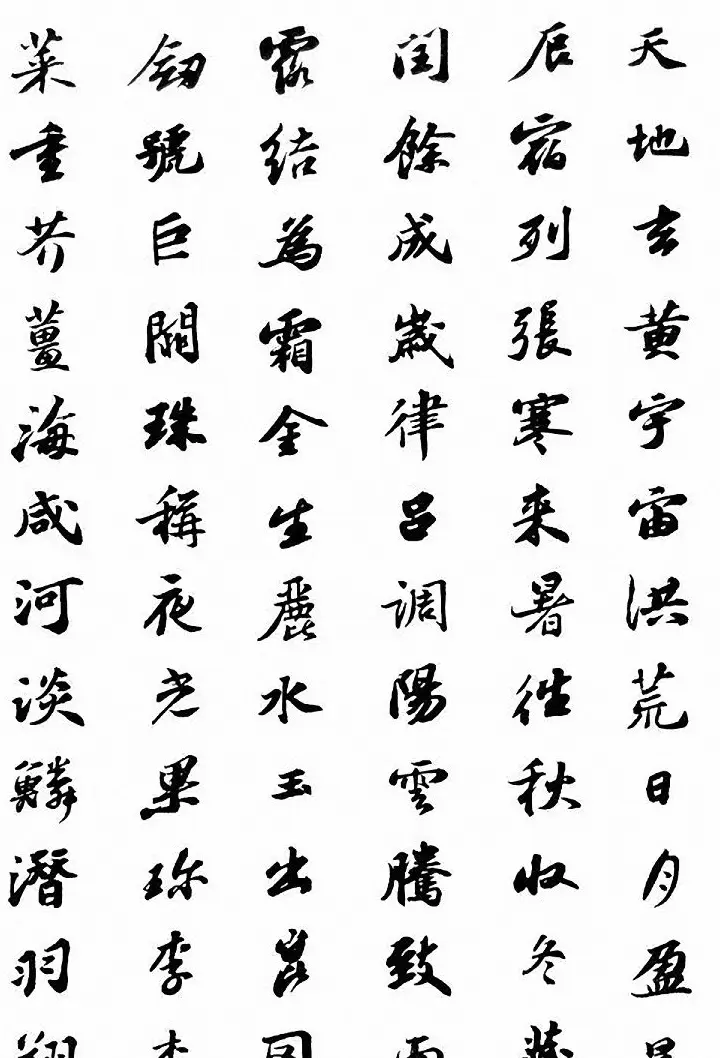 天地玄黄宇宙洪荒日月盈
辰宿列張寒来暑往秋收冬
閏餘成歲律吕調陽雲騰致
露結為霜金生麗水玉出崑
劒號巨闕珠稱夜光果珎李
菜重芥薑海咸河淡鱗潛羽